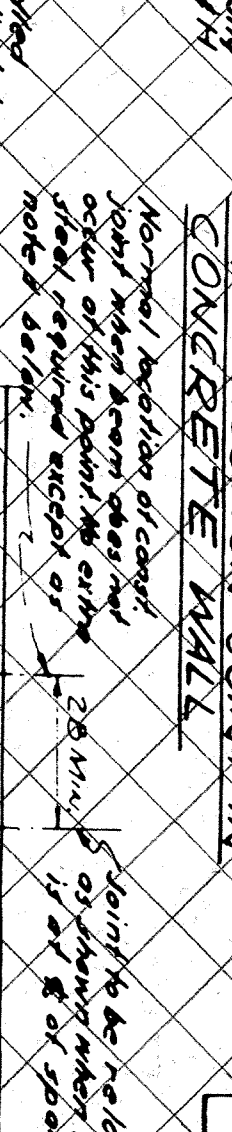 CONCRETE WALL
Normal location of const.
joint when beam does not
occur at this point. No extra
steel required except as
noted below.
2B MIN.
Joint to be
as shown when
is at ℄ of